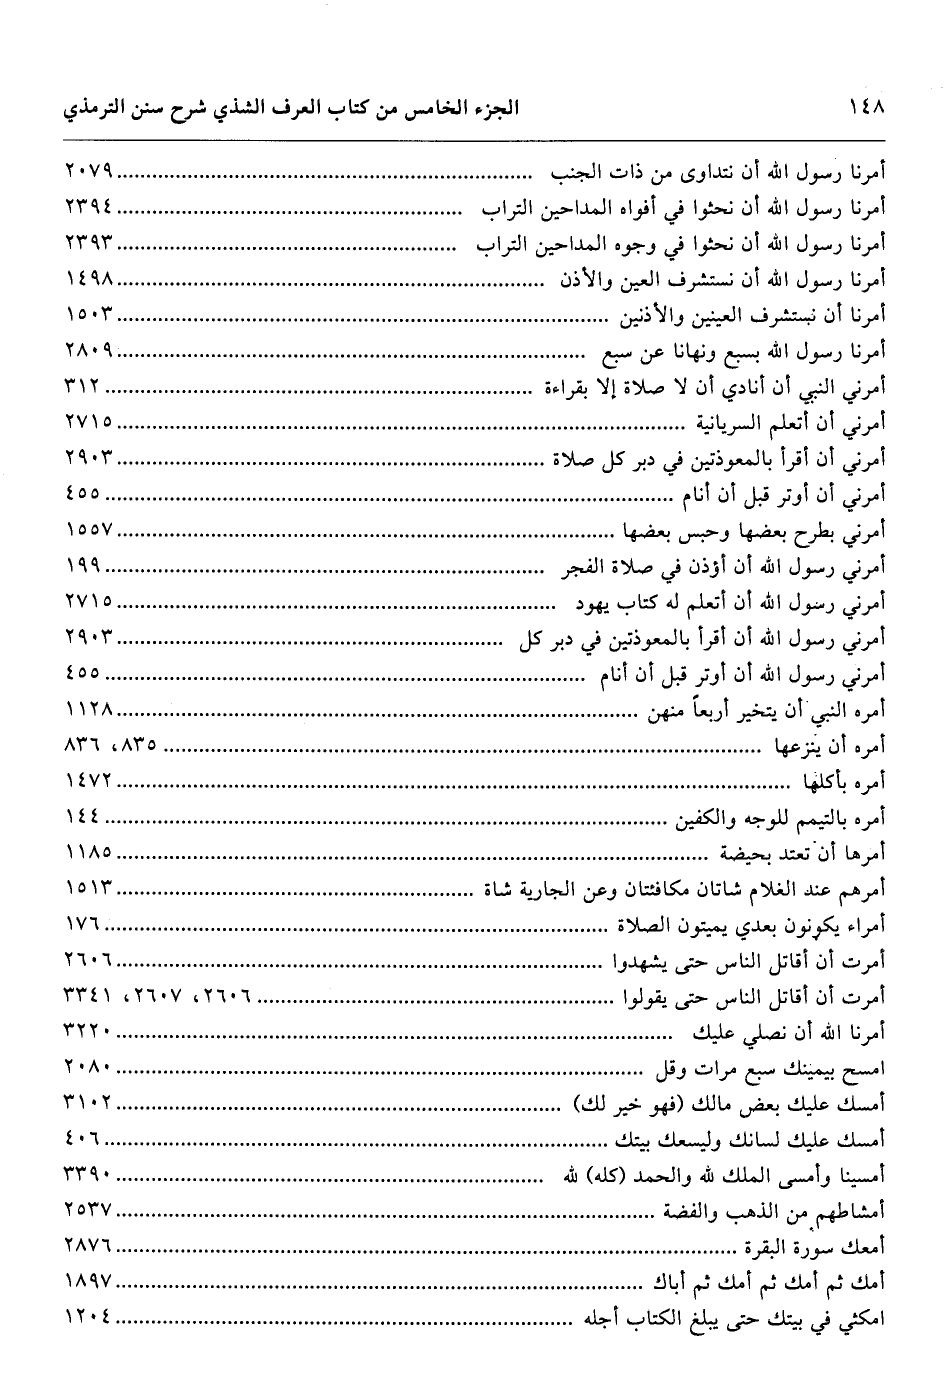 ١٤٨ الجزء الخامس من كتاب العرف الشذي شرح سنن الترمذي
أمرنا رسول الله أن نتداوى من ذات الجنب ........ ٢٠٧٩
أمرنا رسول الله أن نحثوا في أفواه المداحين التراب ........ ٢٣٩٤
أمرنا رسول الله أن نحثوا في وجوه المداحين التراب ........ ٢٣٩٣
أمرنا رسول الله أن نستشرف العين والأذن ........ ١٤٩٨
أمرنا أن نستشرف العينين والأذنين ........ ١٥٠٣
أمرنا رسول الله بسبع ونهانا عن سبع ........ ٢٨٠٩
أمرني النبي أن أنادي أن لا صلاة إلا بقراءة ........ ٣١٢
أمرني أن أتعلم السريانية ........ ٢٧١٥
أمرني أن أقرأ بالمعوذتين في دبر كل صلاة ........ ٢٩٠٣
أمرني أن أوتر قبل أن أنام ........ ٤٥٥
أمرني بطرح بعضها وحبس بعضها ........ ١٥٥٧
أمرني رسول الله أن أؤذن في صلاة الفجر ........ ١٩٩
أمرني رسول الله أن أتعلم له كتاب يهود ........ ٢٧١٥
أمرني رسول الله أن أقرأ بالمعوذتين في دبر كل ........ ٢٩٠٣
أمرني رسول الله أن أوتر قبل أن أنام ........ ٤٥٥
أمره النبي أن يتخير أربعاً منهن ........ ١١٢٨
أمره أن ينزعها ........ ٨٣٥، ٨٣٦
أمره بأكلها ........ ١٤٧٢
أمره بالتيمم للوجه والكفين ........ ١٤٤
أمرها أن تعتد بحيضة ........ ١١٨٥
أمرهم عند الغلام شاتان مكافئتان وعن الجارية شاة ........ ١٥١٣
أمراء يكونون بعدي يميتون الصلاة ........ ١٧٦
أمرت أن أقاتل الناس حتى يشهدوا ........ ٢٦٠٦
أمرت أن أقاتل الناس حتى يقولوا ........ ٢٦٠٦، ٢٦٠٧، ٣٣٤١
أمرنا الله أن نصلي عليك ........ ٣٢٢٠
امسح بيمينك سبع مرات وقل ........ ٢٠٨٠
أمسك عليك بعض مالك (فهو خير لك) ........ ٣١٠٢
أمسك عليك لسانك وليسعك بيتك ........ ٤٠٦
أمسينا وأمسى الملك لله والحمد (كله) لله ........ ٣٣٩٠
أمشاطهم من الذهب والفضة ........ ٢٥٣٧
أمعك سورة البقرة ........ ٢٨٧٦
أمك ثم أمك ثم أمك ثم أباك ........ ١٨٩٧
امكثي في بيتك حتى يبلغ الكتاب أجله ........ ١٢٠٤